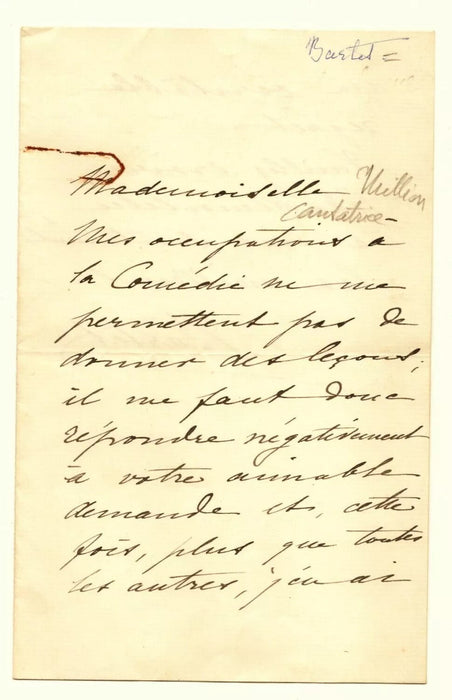 Bartet =
Mademoiselle Million
Cantatrice -
Mes occupations à
la Comédie ne me
permettent pas de
donner des leçons;
il me faut donc
répondre négativement
à votre aimable
demande et, cette
fois, plus que toutes
les autres, j'en ai